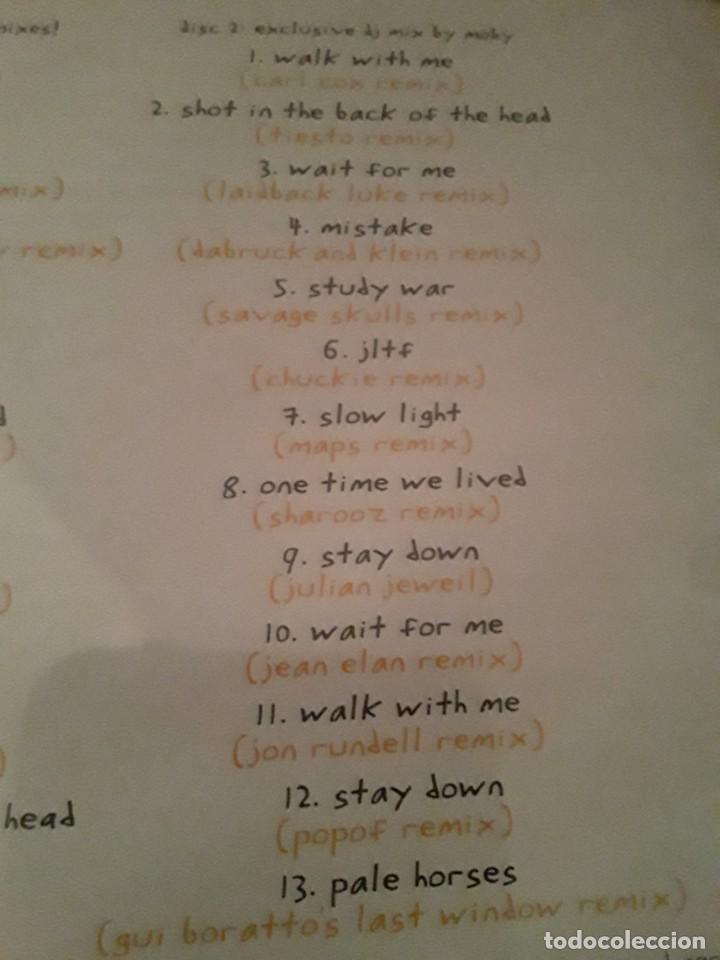 disc 2: exclusive dj mix by moby
1. walk with me
(carl cox remix)
2. shot in the back of the head
(tiesto remix)
3. wait for me
(laidback luke remix)
4. mistake
(dabruck and klein remix)
5. study war
(savage skulls remix)
6. jltf
(chuckie remix)
7. slow light
(maps remix)
8. one time we lived
(sharooz remix)
9. stay down
(julian jeweil)
10. wait for me
(jean elan remix)
11. walk with me
(jon rundell remix)
12. stay down
(popof remix)
13. pale horses
(gui boratto's last window remix)
remix)
head
todocoleccion